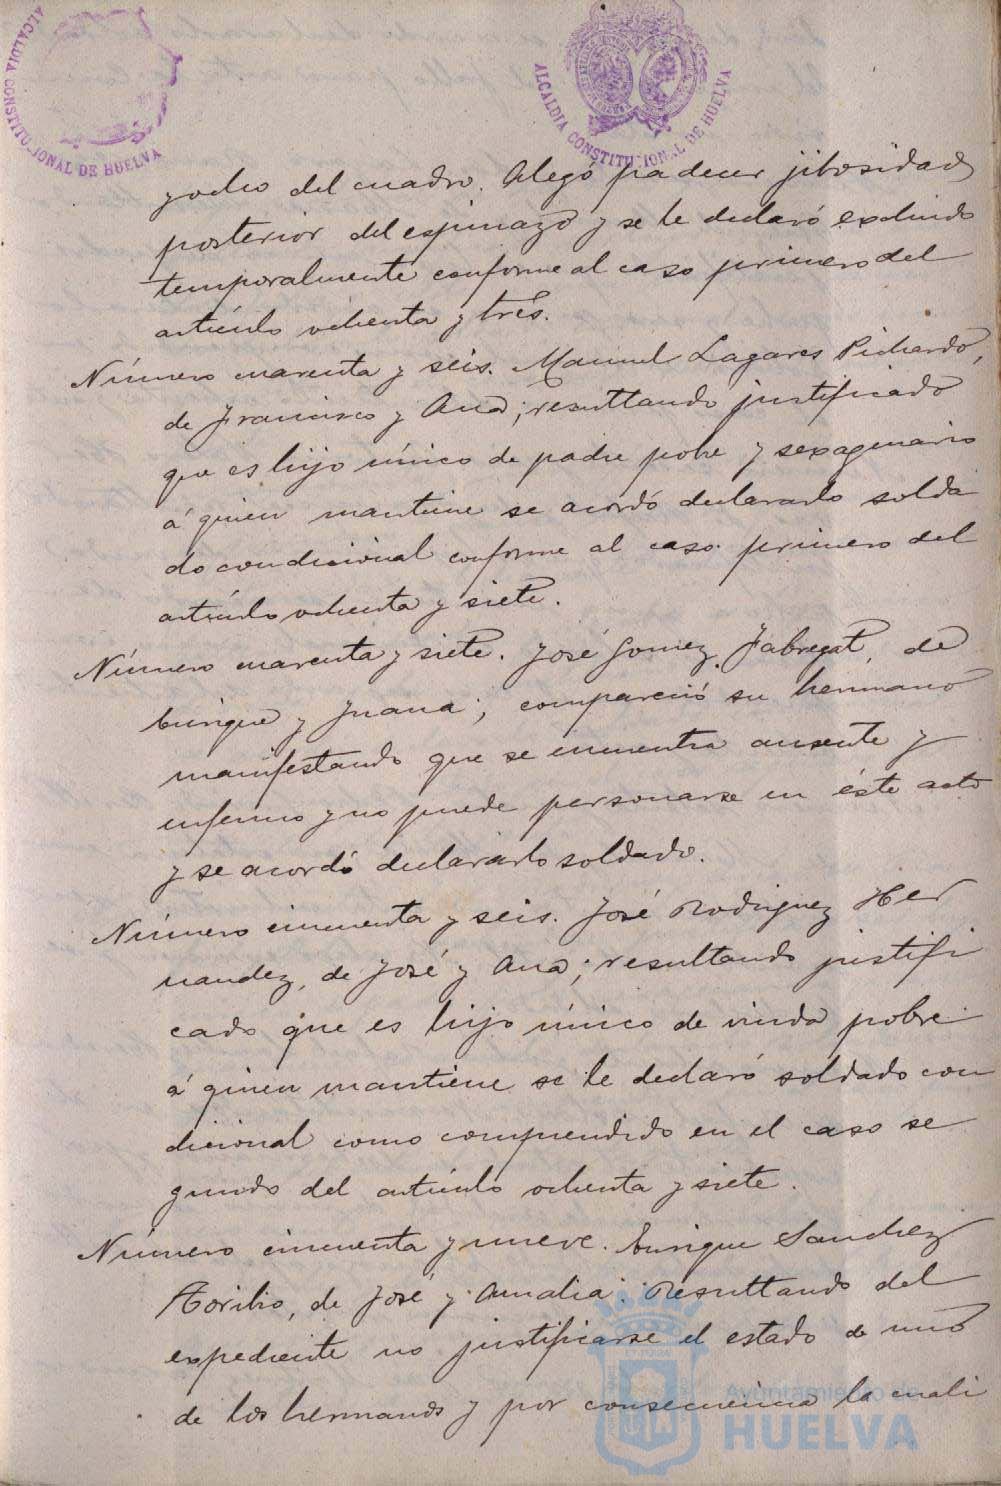 ALCALDIA CONSTITUCIONAL DE HUELVA
ALCALDIA CONSTITUCIONAL DE HUELVA
y ocho del cuadro. Alegó padecer jibosidad
posterior del espinazo y se le declaró excluido
temporalmente conforme al caso primero del
artículo ochenta y trés.
Número cuarenta y seis. Manuel Lagares Pichardo,
de Francisco y Ana; resultando justificado
que es hijo único de padre pobre y sexagenario
á quien mantiene se acordó declararlo solda
do condicional conforme al caso primero del
artículo ochenta y siete.
Número cuarenta y siete. José Gomez Fabregat, de
Enrique y Juana; compareció su hermano
manifestando que se encuentra ausente y
enfermo y no puede personarse en éste acto
y se acordó declararlo soldado.
Número cincuenta y seis. José Rodriguez Her
nandez, de José y Ana; resultando justifi
cado que es hijo único de viuda pobre
á quien mantiene se le declaró soldado con
dicional como comprendido en el caso se
gundo del artículo ochenta y siete.
Número cincuenta y nueve. Enrique Sanchez
Toribio, de José y Amalia. Resultando del
expediente no justificarse el estado de uno
de los hermanos y por consecuencia la cuali
Ayuntamiento de
HUELVA